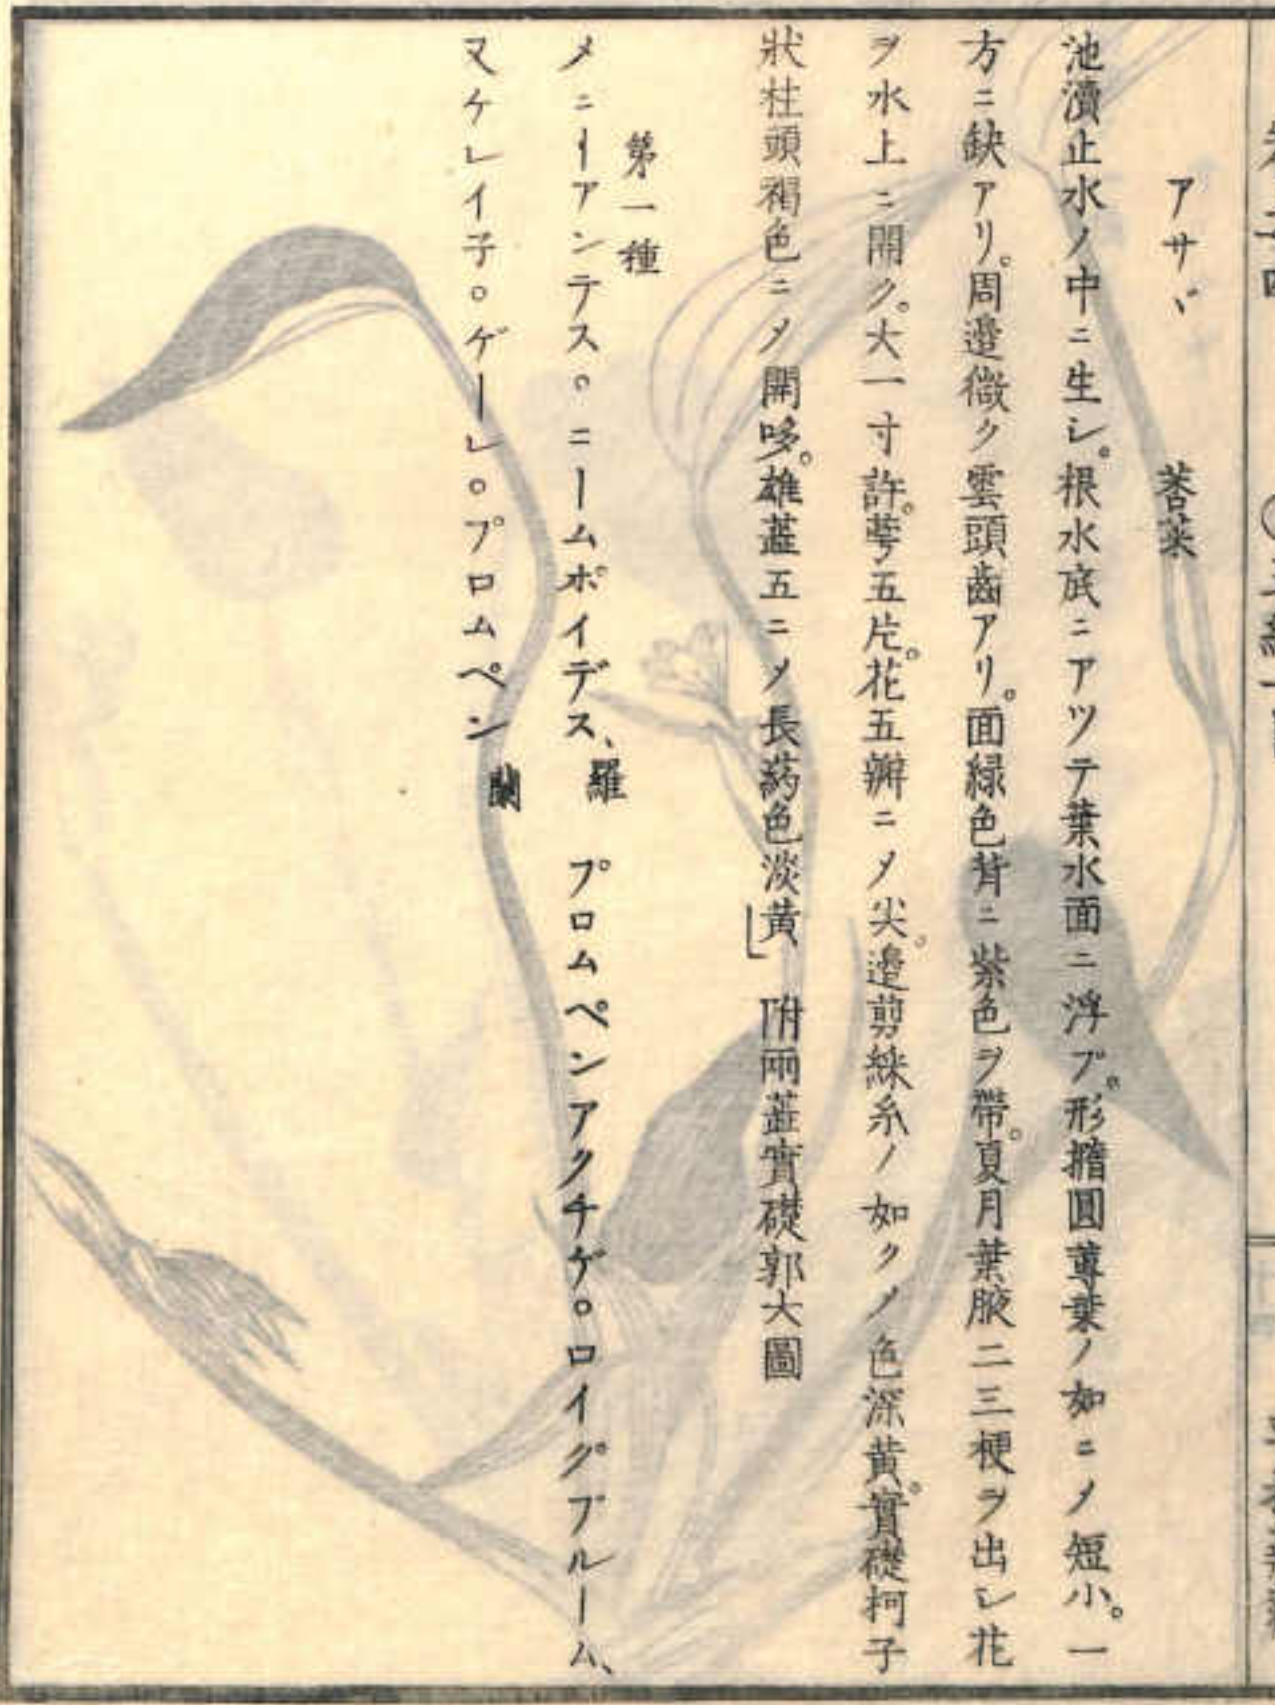 アサヾ 莕菜
池瀆止水ノ中ニ生シ。根水底ニアツテ葉水面ニ浮ブ。形撱圓蓴葉ノ如ニメ短小。一
方ニ缺アリ。周邊微ク雲頭齒アリ。面緑色背ニ紫色ヲ帶。夏月葉腋二三梗ヲ出シ花
ヲ水上ニ開ク。大一寸許。萼五片。花五瓣ニメ尖。邊剪綵糸ノ如クメ色深黄。實礎柯子
狀柱頭褐色ニメ開哆。雄蕋五ニメ長葯色淡黄」附兩蕋實礎郭大圖
第一種
メニーアンテス。ニームポイデス、羅 プロムペンアクチゲ。ロイグブルーム、
又ケ」イ子。ゲー」。プロムペン 蘭